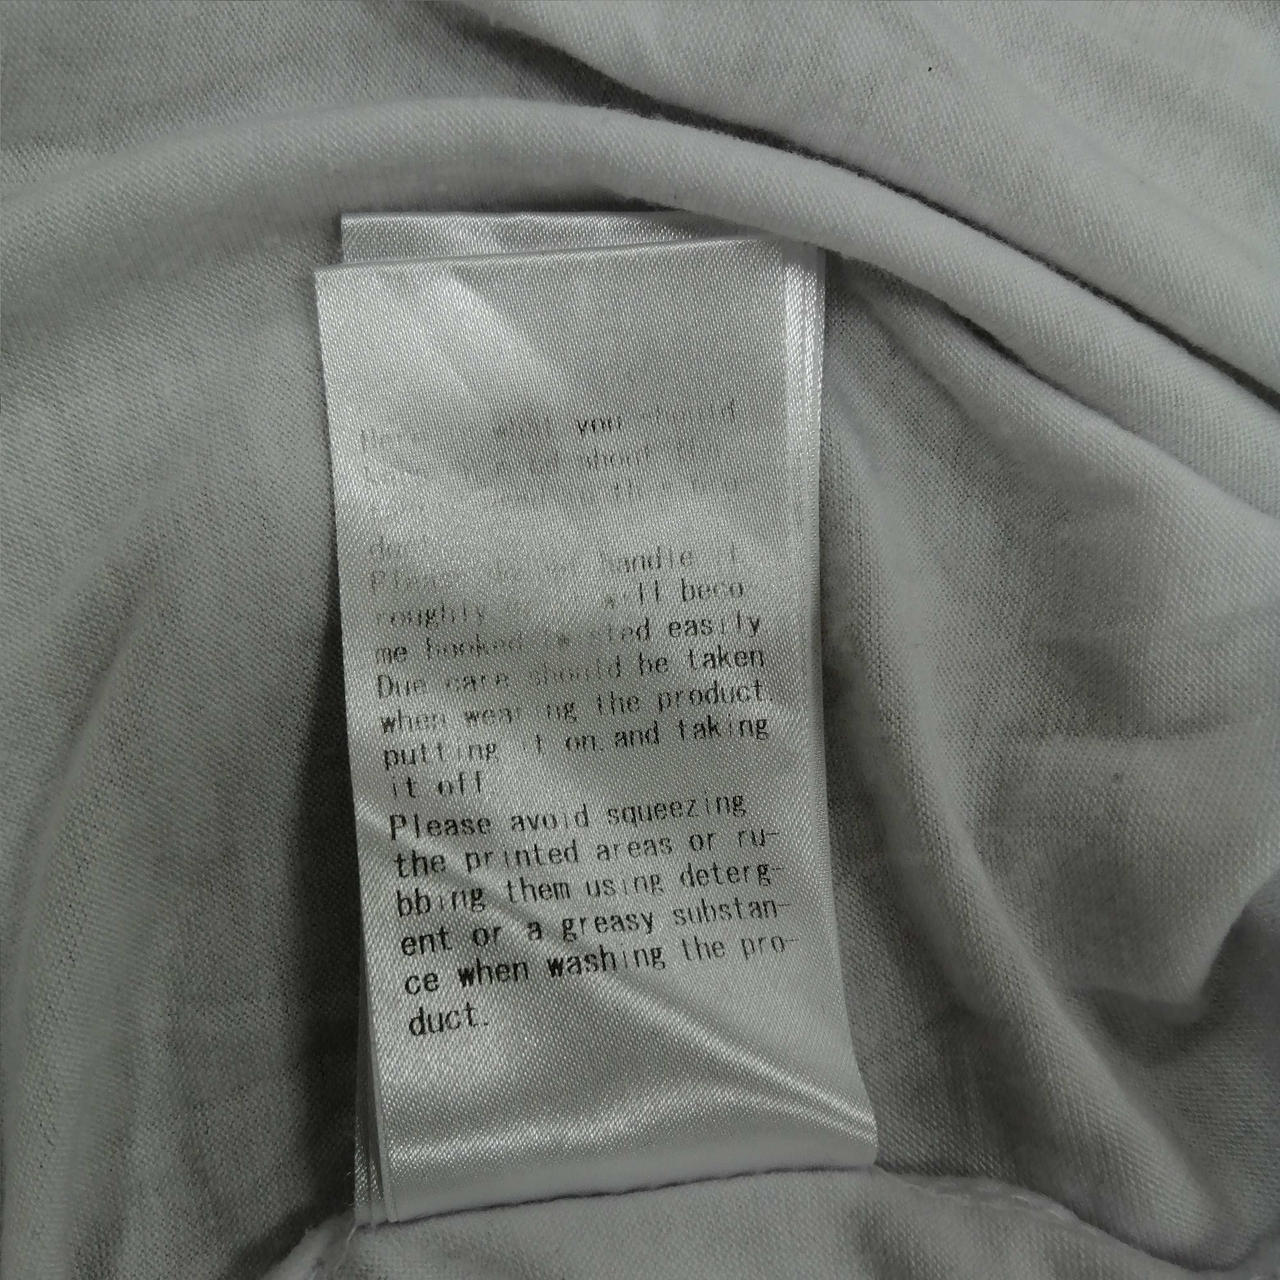 you should
about
duct
Please do not handle it
roughly or it will beco-
me hooked twisted easily
Due care should be taken
when wearing the product,
putting it on and taking
it off.
Please avoid squeezing
the printed areas or ru-
bbing them using deterg-
ent or a greasy substan-
ce when washing the pro-
duct.